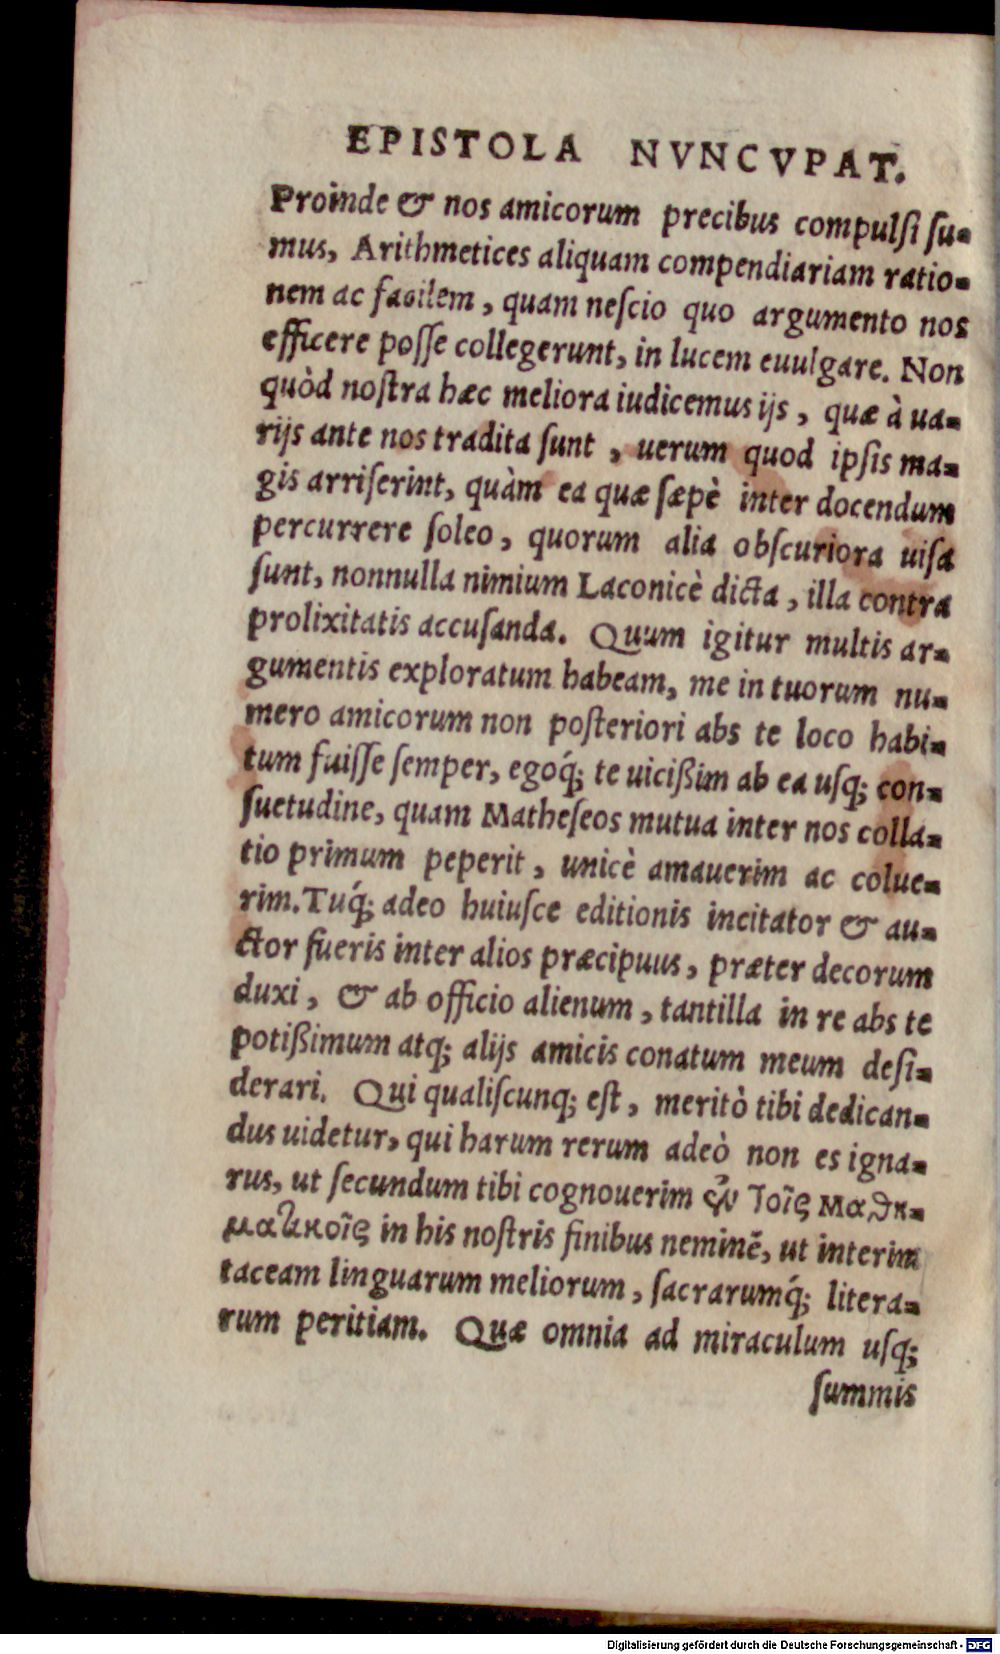 EPISTOLA NVNCVPAT.
Proinde & nos amicorum precibus compulſi ſu-
mus, Arithmetices aliquam compendiariam ratio-
nem ac facilem, quam neſcio quo argumento nos
efficere poſſe collegerunt, in lucem euulgare. Non
quòd noſtra hæc meliora iudicemus ijs, quæ à ua-
rijs ante nos tradita ſunt, uerum quod ipſis ma-
gis arriſerint, quàm ea quæ ſæpè inter docendum
percurrere ſoleo, quorum alia obſcuriora uiſa
ſunt, nonnulla nimium Laconicè dicta, illa contra
prolixitatis accuſanda. Quum igitur multis ar-
gumentis exploratum habeam, me in tuorum nu-
mero amicorum non poſteriori abs te loco habi-
tum fuiſſe ſemper, egoq́; te uicißim ab ea uſq; con-
ſuetudine, quam Matheſeos mutua inter nos colla-
tio primum peperit, unicè amauerim ac colue-
rim. Tuq́; adeo huiuſce editionis incitator & au-
ctor fueris inter alios præcipuus, præter decorum
duxi, & ab officio alienum, tantilla in re abs te
potißimum atq; alijs amicis conatum meum deſi-
derari. Qui qualiſcunq; eſt, meritò tibi dedican-
dus uidetur, qui harum rerum adeò non es igna-
rus, ut ſecundum tibi cognouerim ἐν τοῖς μαθη-
ματικοῖς in his noſtris finibus neminē, ut interim
taceam linguarum meliorum, ſacrarumq́; litera-
rum peritiam. Quæ omnia ad miraculum uſq;
ſummis
Digitalisierung gefördert durch die Deutsche Forschungsgemeinschaft - DFG